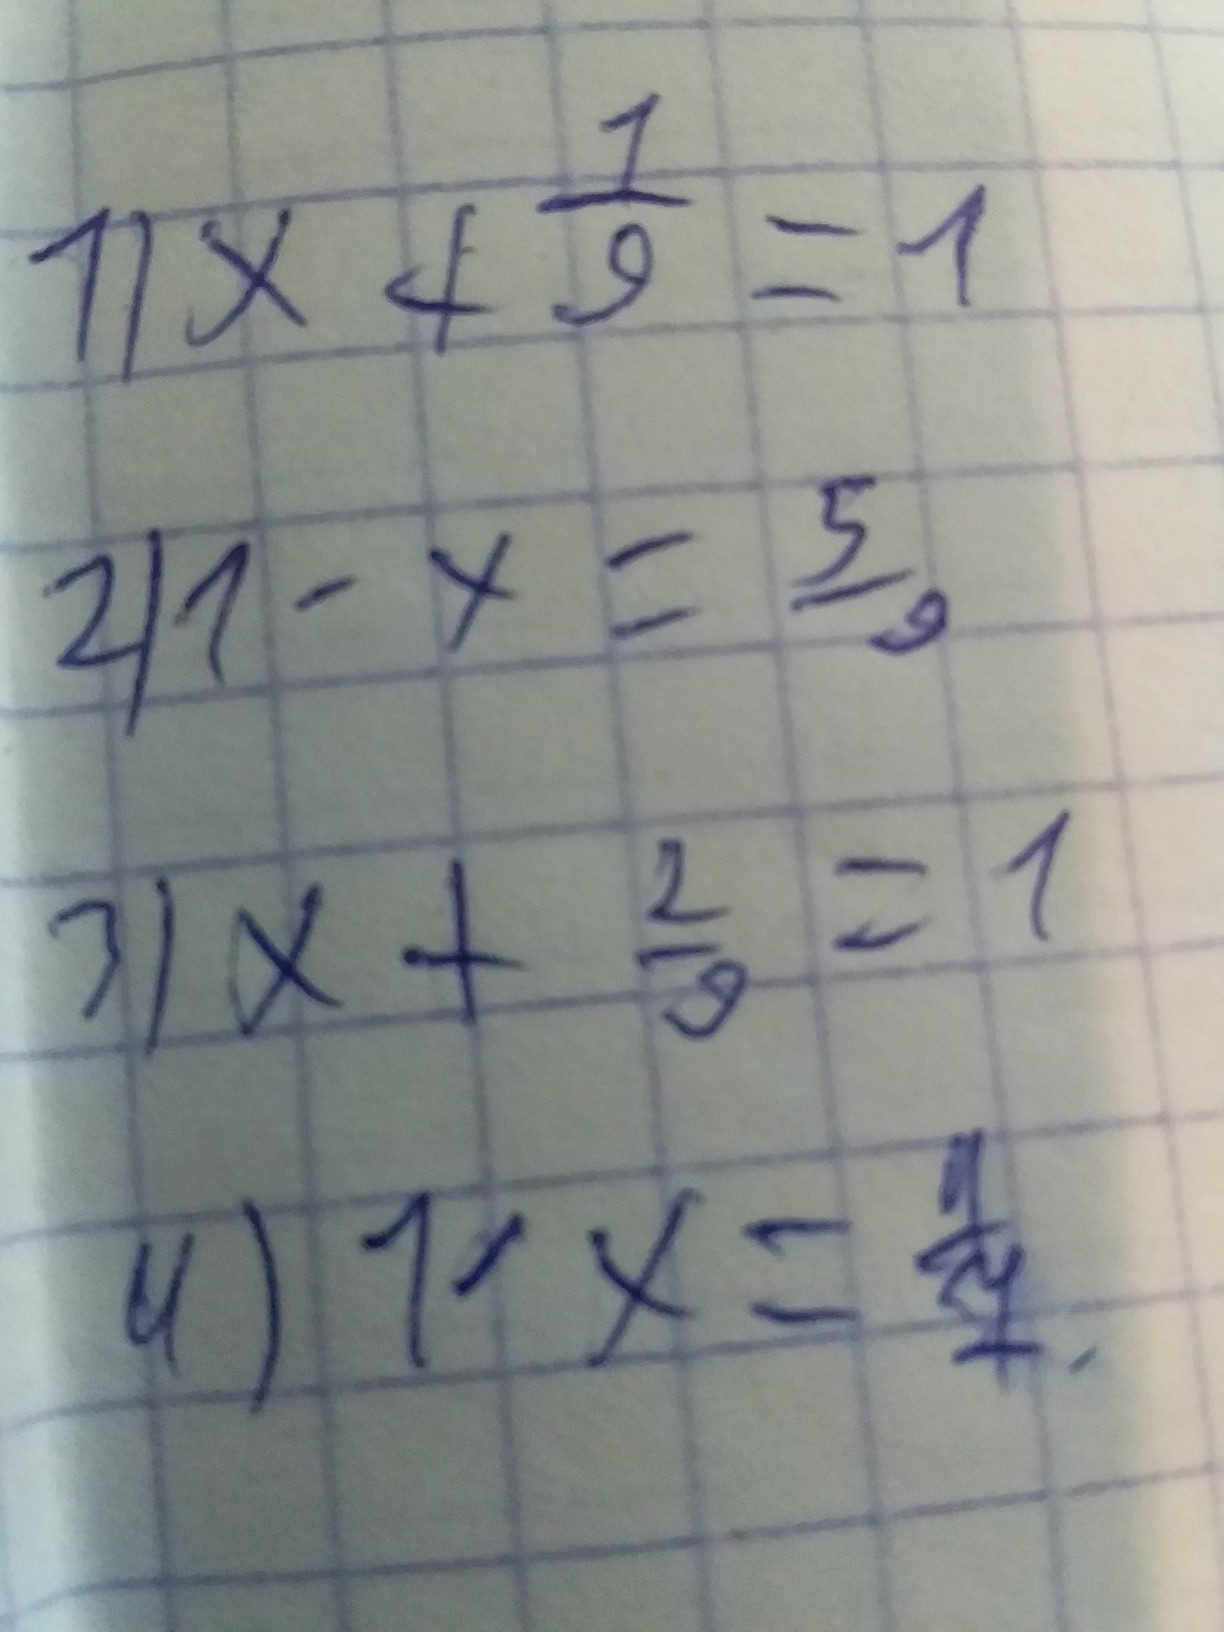 1) x + 1/9 = 1
2) 1 - x = 5/9
3) x + 2/9 = 1
4) 1 - x =